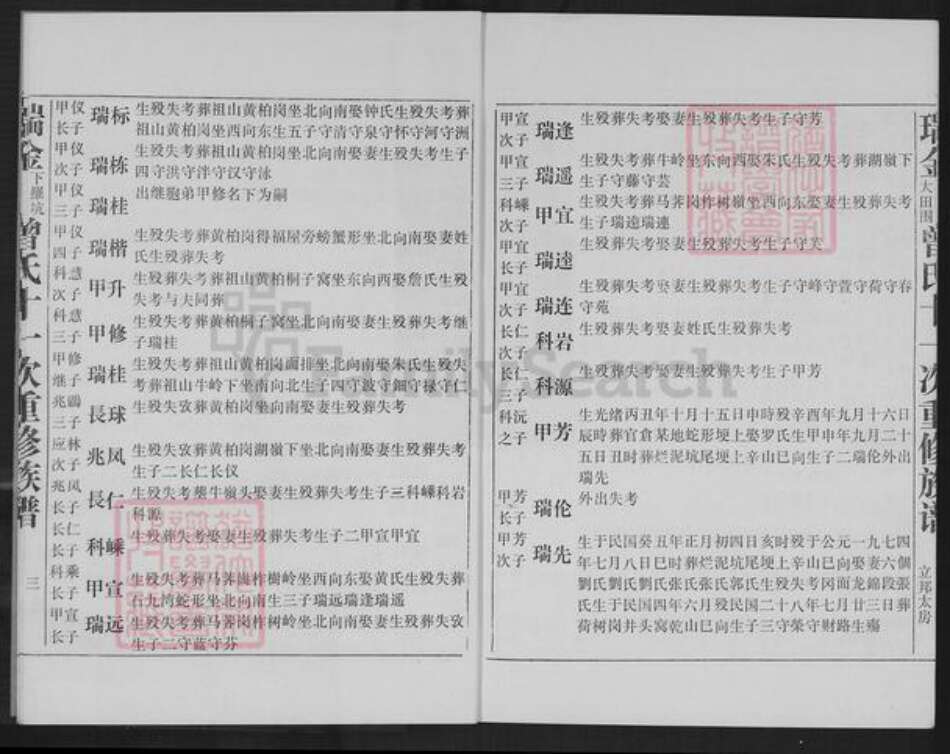 瑞金下继坑曾氏十一次重修族谱
三
甲仪长子
瑞标
生殁失考葬祖山黄柏岗坐北向南娶钟氏生殁失考葬
祖山黄柏岗坐西向东生五子守清守泉守怀守河守洲
甲仪次子
瑞栋
生殁失考葬祖山黄柏岗坐北向南娶妻生殁失考生子
四守洪守泮守汉守泳
甲仪三子
瑞桂
出继胞弟甲修名下为嗣
甲仪四子
瑞楷
生殁失考葬黄柏岗得福屋旁螃蟹形坐北向南娶妻姓
氏生殁葬失考
科慧次子
甲升
生殁失考葬考葬祖山黄柏桐子窝坐东向西娶詹氏生殁
失考与夫同葬
科慧三子
甲修
生殁失考葬黄柏桐子窝坐北向南娶妻生殁葬失考继
子瑞桂
甲修继子
瑞桂
生殁失考葬祖山黄柏岗面排坐北向南娶朱氏生殁失
考葬祖山牛岭下坐南向北生子四守波守钿守禄守仁
兆鷗三子
長球
生殁失攷葬黄柏岗坐向南娶妻生殁葬失考
应林次子
兆凤
生殁失攷葬黄柏岗湖嶺下坐北向南娶妻生殁葬失考
生子二长仁长仪
兆凤长子
長仁
生殁失考葬牛嶺头娶妻生殁葬失考生子三科嵊科岩
科源
长仁长子
科嵊
生殁葬失考娶妻生殁葬失考生子二甲宣甲宜
科乘长子
甲宣
生殁失考葬马荠岗柞樹岭坐西向东娶黄氏生殁失葬
石九湾蛇形坐北向南生三子瑞远瑞逢瑞遥
甲宣长子
瑞远
生殁失考葬马荠岗柞树岭坐北向南娶妻生殁葬失攷
生子二守蓝守芬
瑞金大田围曾氏十一次重修族谱
立邦太房
甲宣次子
瑞逢
生殁葬失考娶妻生殁葬失考生子守芳
甲宣三子
瑞遥
生殁失考葬牛岭坐东向西娶朱氏生殁失考葬湖嶺下
生子守藤守芸
科嵊次子
甲宜
生殁失考葬马荠岗柞树嶺坐西向东娶妻生殁葬失考
生子瑞逵瑞連
甲宜长子
瑞逵
生殁葬失考娶妻生殁葬失考生子守芙
甲宜次子
瑞连
生殁葬失考娶妻生殁葬失考生子守峰守萱守荷守春
守苑
长仁次子
科岩
生殁葬失考娶妻姓氏生殁葬失考
长仁三子
科源
生殁葬失考娶妻生殁葬失考生子甲芳
科沅之子
甲芳
生光绪丙丑年十月十五日申時殁辛酉年九月十六日
辰時葬官倉某地蛇形埂上娶罗氏生甲申年九月二十
五日丑时葬烂泥坑尾埂上辛山巳向生子二瑞伦外出
瑞先
甲芳长子
瑞伦
外出失考
甲芳次子
瑞先
生于民国癸丑年正月初四日亥时殁于公元一九七四
年七月八日巳时葬烂泥坑尾埂上辛山巳向娶妻六個
劉氏劉氏劉氏张氏张氏郭氏生殁失考冈面龙錦段張
氏生于民国四年六月殁民国二十八年七月廿三日葬
荷树岗井头窝乾山巳向生子三守荣守财路生殤
FamilySearch